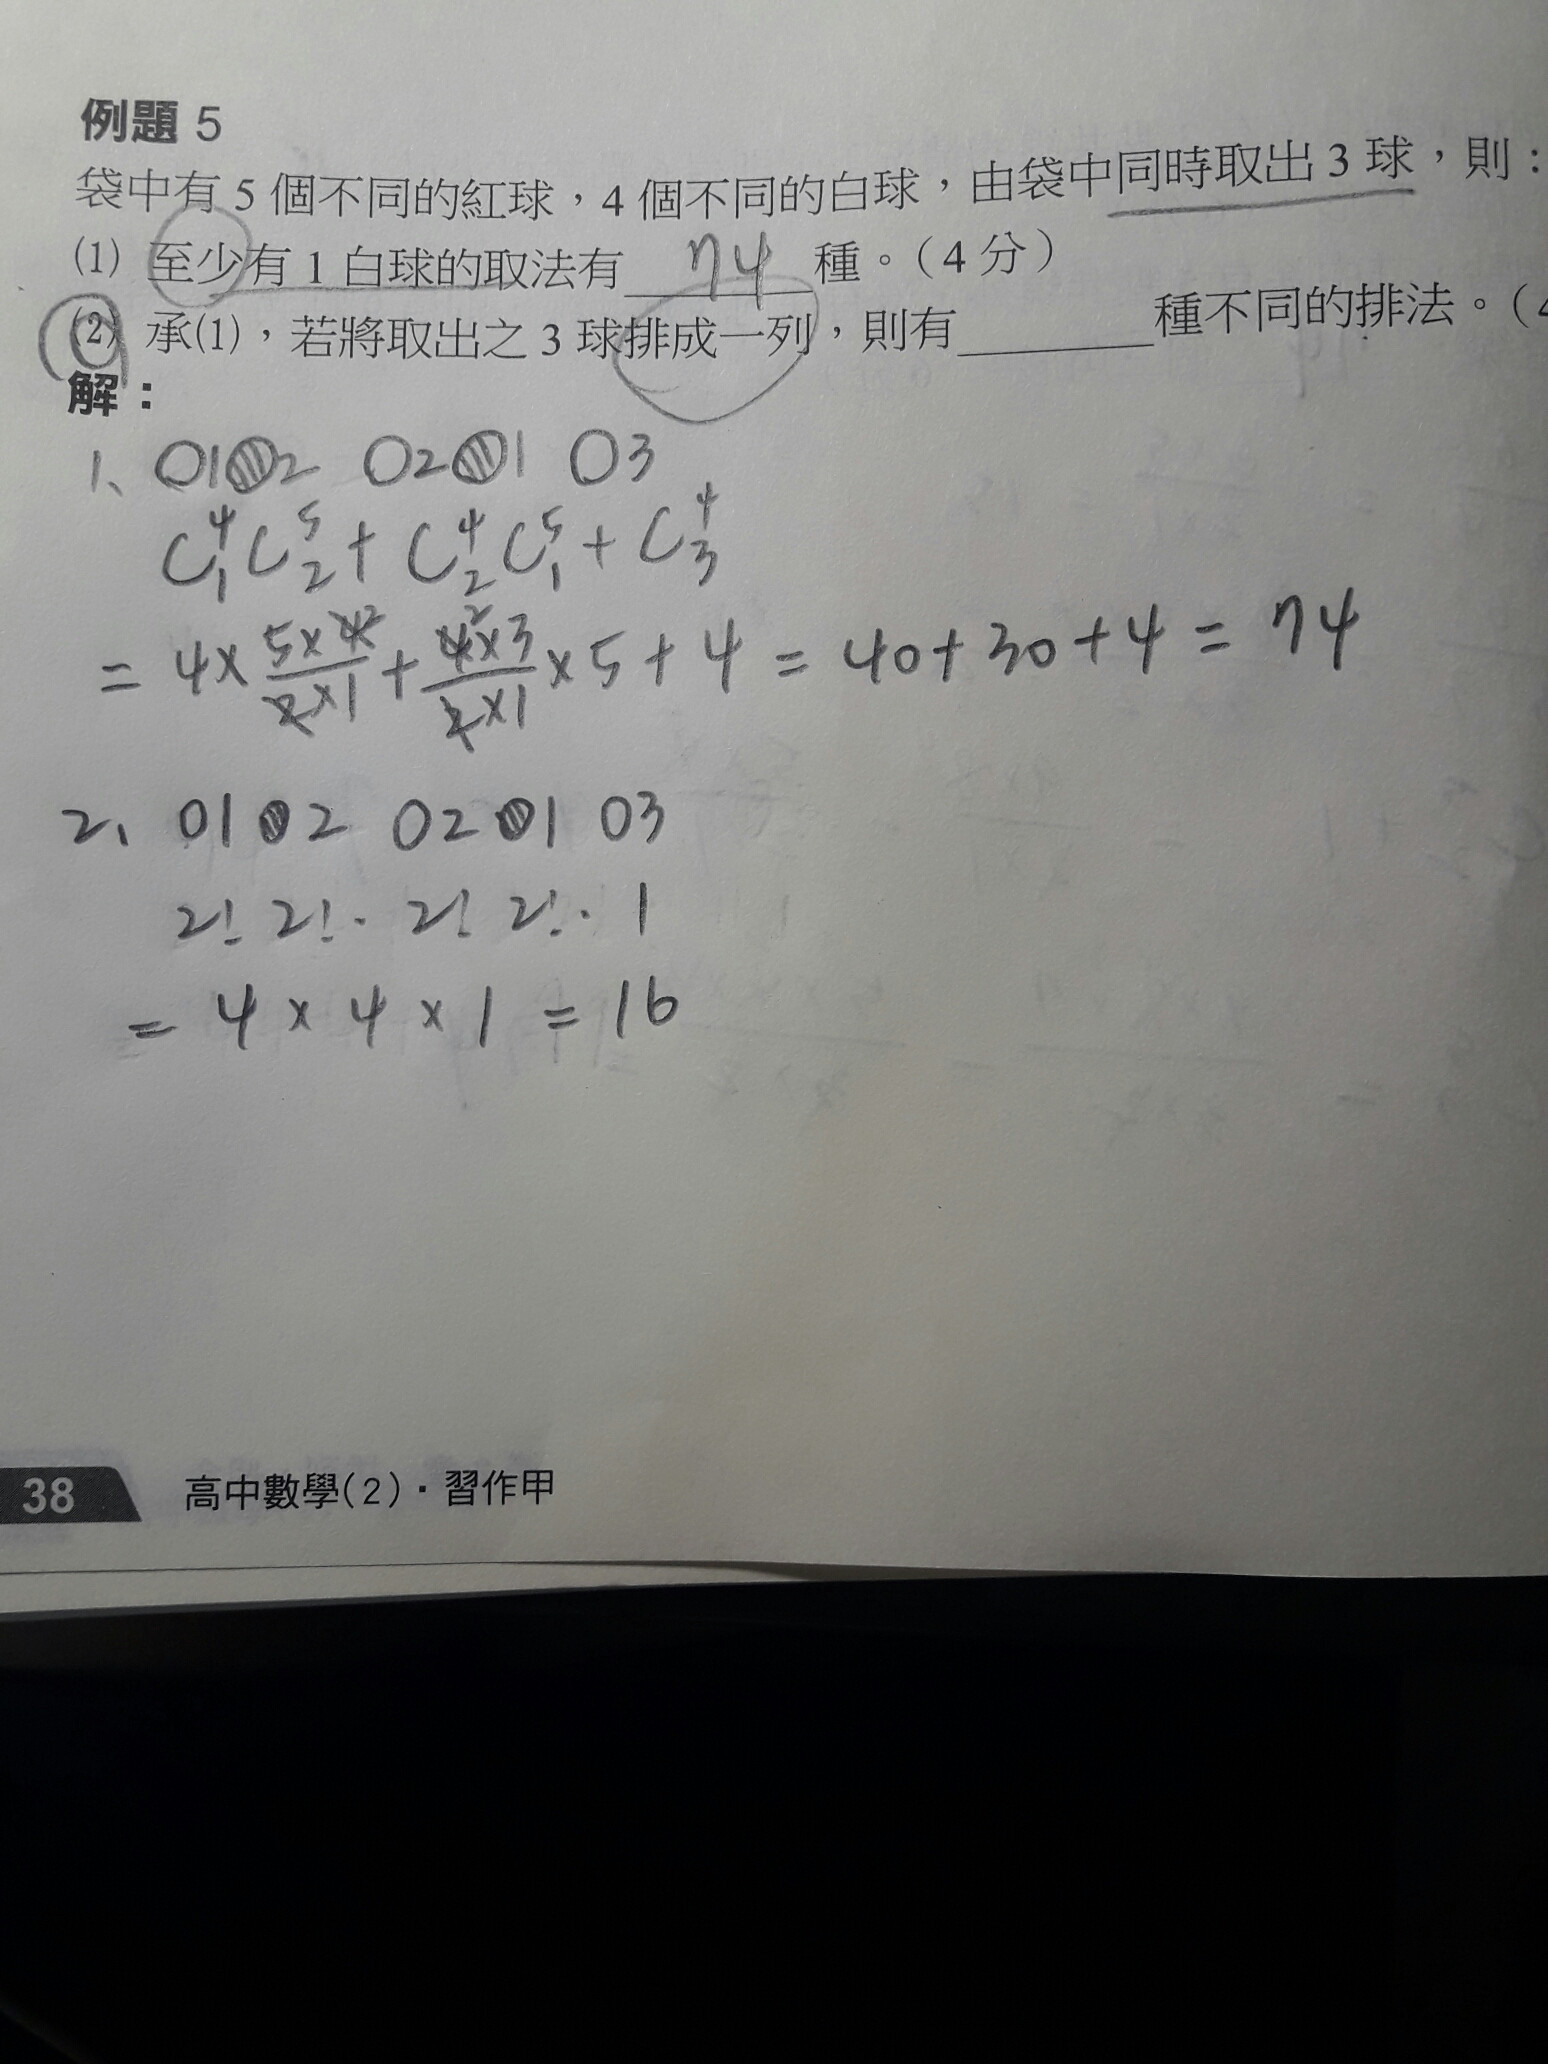 例題 5
袋中有 5 個不同的紅球，4 個不同的白球，由袋中同時取出 3 球，則：
(1) 至少有 1 白球的取法有 74 種。（4 分）
(2) 承(1)，若將取出之 3 球排成一列，則有______種不同的排法。（4
解：
1、 ○1●2 ○2●1 ○3
C⁴₁C⁵₂ + C⁴₂C⁵₁ + C⁴₃
= 4×(5×4²)/(2×1) + (4²×3)/(2×1)×5+4 = 40+30+4 = 74
2、 ○1●2 ○2●1 ○3
2! 2!· 2! 2!· 1
= 4 × 4 × 1 = 16
38 高中數學(2)・習作甲